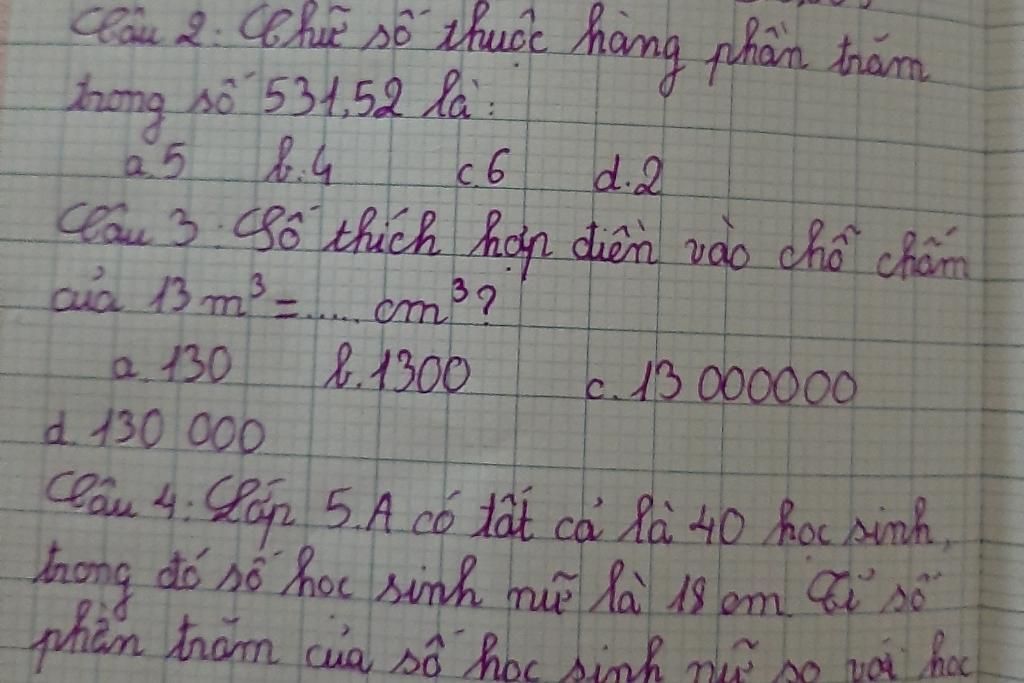 Câu 2: Chữ số thuộc hàng phần trăm
trong số 531,52 là:
a. 5 b. 4 c. 6 d. 2
Câu 3: Số thích hợp điền vào chỗ chấm
của 13 m³ = ..... cm³?
a. 130 b. 1300 c. 13 000000
d. 130 000
Câu 4: Lớp 5.A có tất cả là 40 học sinh,
trong đó số học sinh nữ là 18 em. Tỉ số
phần trăm của số học sinh nữ so với học